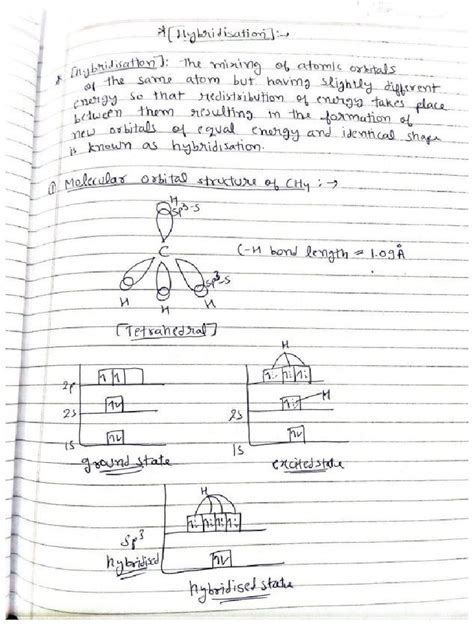 *[Hybridisation]:→
* [Hybridisation]: The mixing of atomic orbitals
of the same atom but having slightly different
energy so that redistribution of energy takes place
between them resulting in the formation of
new orbitals of equal energy and identical shape
is known as hybridisation.
① Molecular orbital structure of CH4 :→
H
sp3-s
C
C-H bond length = 1.09Å
sp3-s
H H H
[Tetrahedral]
H
2p
2s
H
2s
1s
1s
ground state
excited state
H
sp3
hybridised
hybridised state